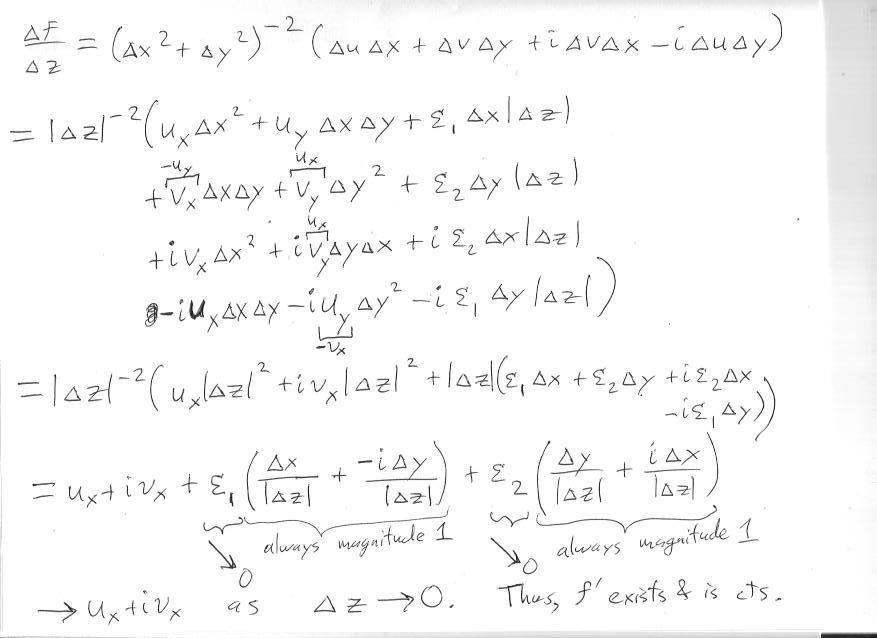 ΔF/Δz = (Δx² + Δy²)⁻² (Δu Δx + Δv Δy + i Δv Δx − i Δu Δy)
= |Δz|⁻² (u_x Δx² + u_y Δx Δy + ε₁ Δx |Δz|
−u_y u_x
+ v_x Δx Δy + v_y Δy² + ε₂ Δy |Δz|
u_x
+ i v_x Δx² + i v_y Δy Δx + i ε₂ Δx |Δz|
− i u_x Δx Δy − i u_y Δy² − i ε₁ Δy |Δz|)
−v_x
= |Δz|⁻² (u_x |Δz|² + i v_x |Δz|² + |Δz| (ε₁ Δx + ε₂ Δy + i ε₂ Δx
− i ε₁ Δy))
= u_x + i v_x + ε₁ (Δx/|Δz| + −i Δy/|Δz|) + ε₂ (Δy/|Δz| + i Δx/|Δz|)
↘ 0 always magnitude 1 ↘ 0 always magnitude 1
→ u_x + i v_x as Δz → 0. Thus, f' exists & is cts.